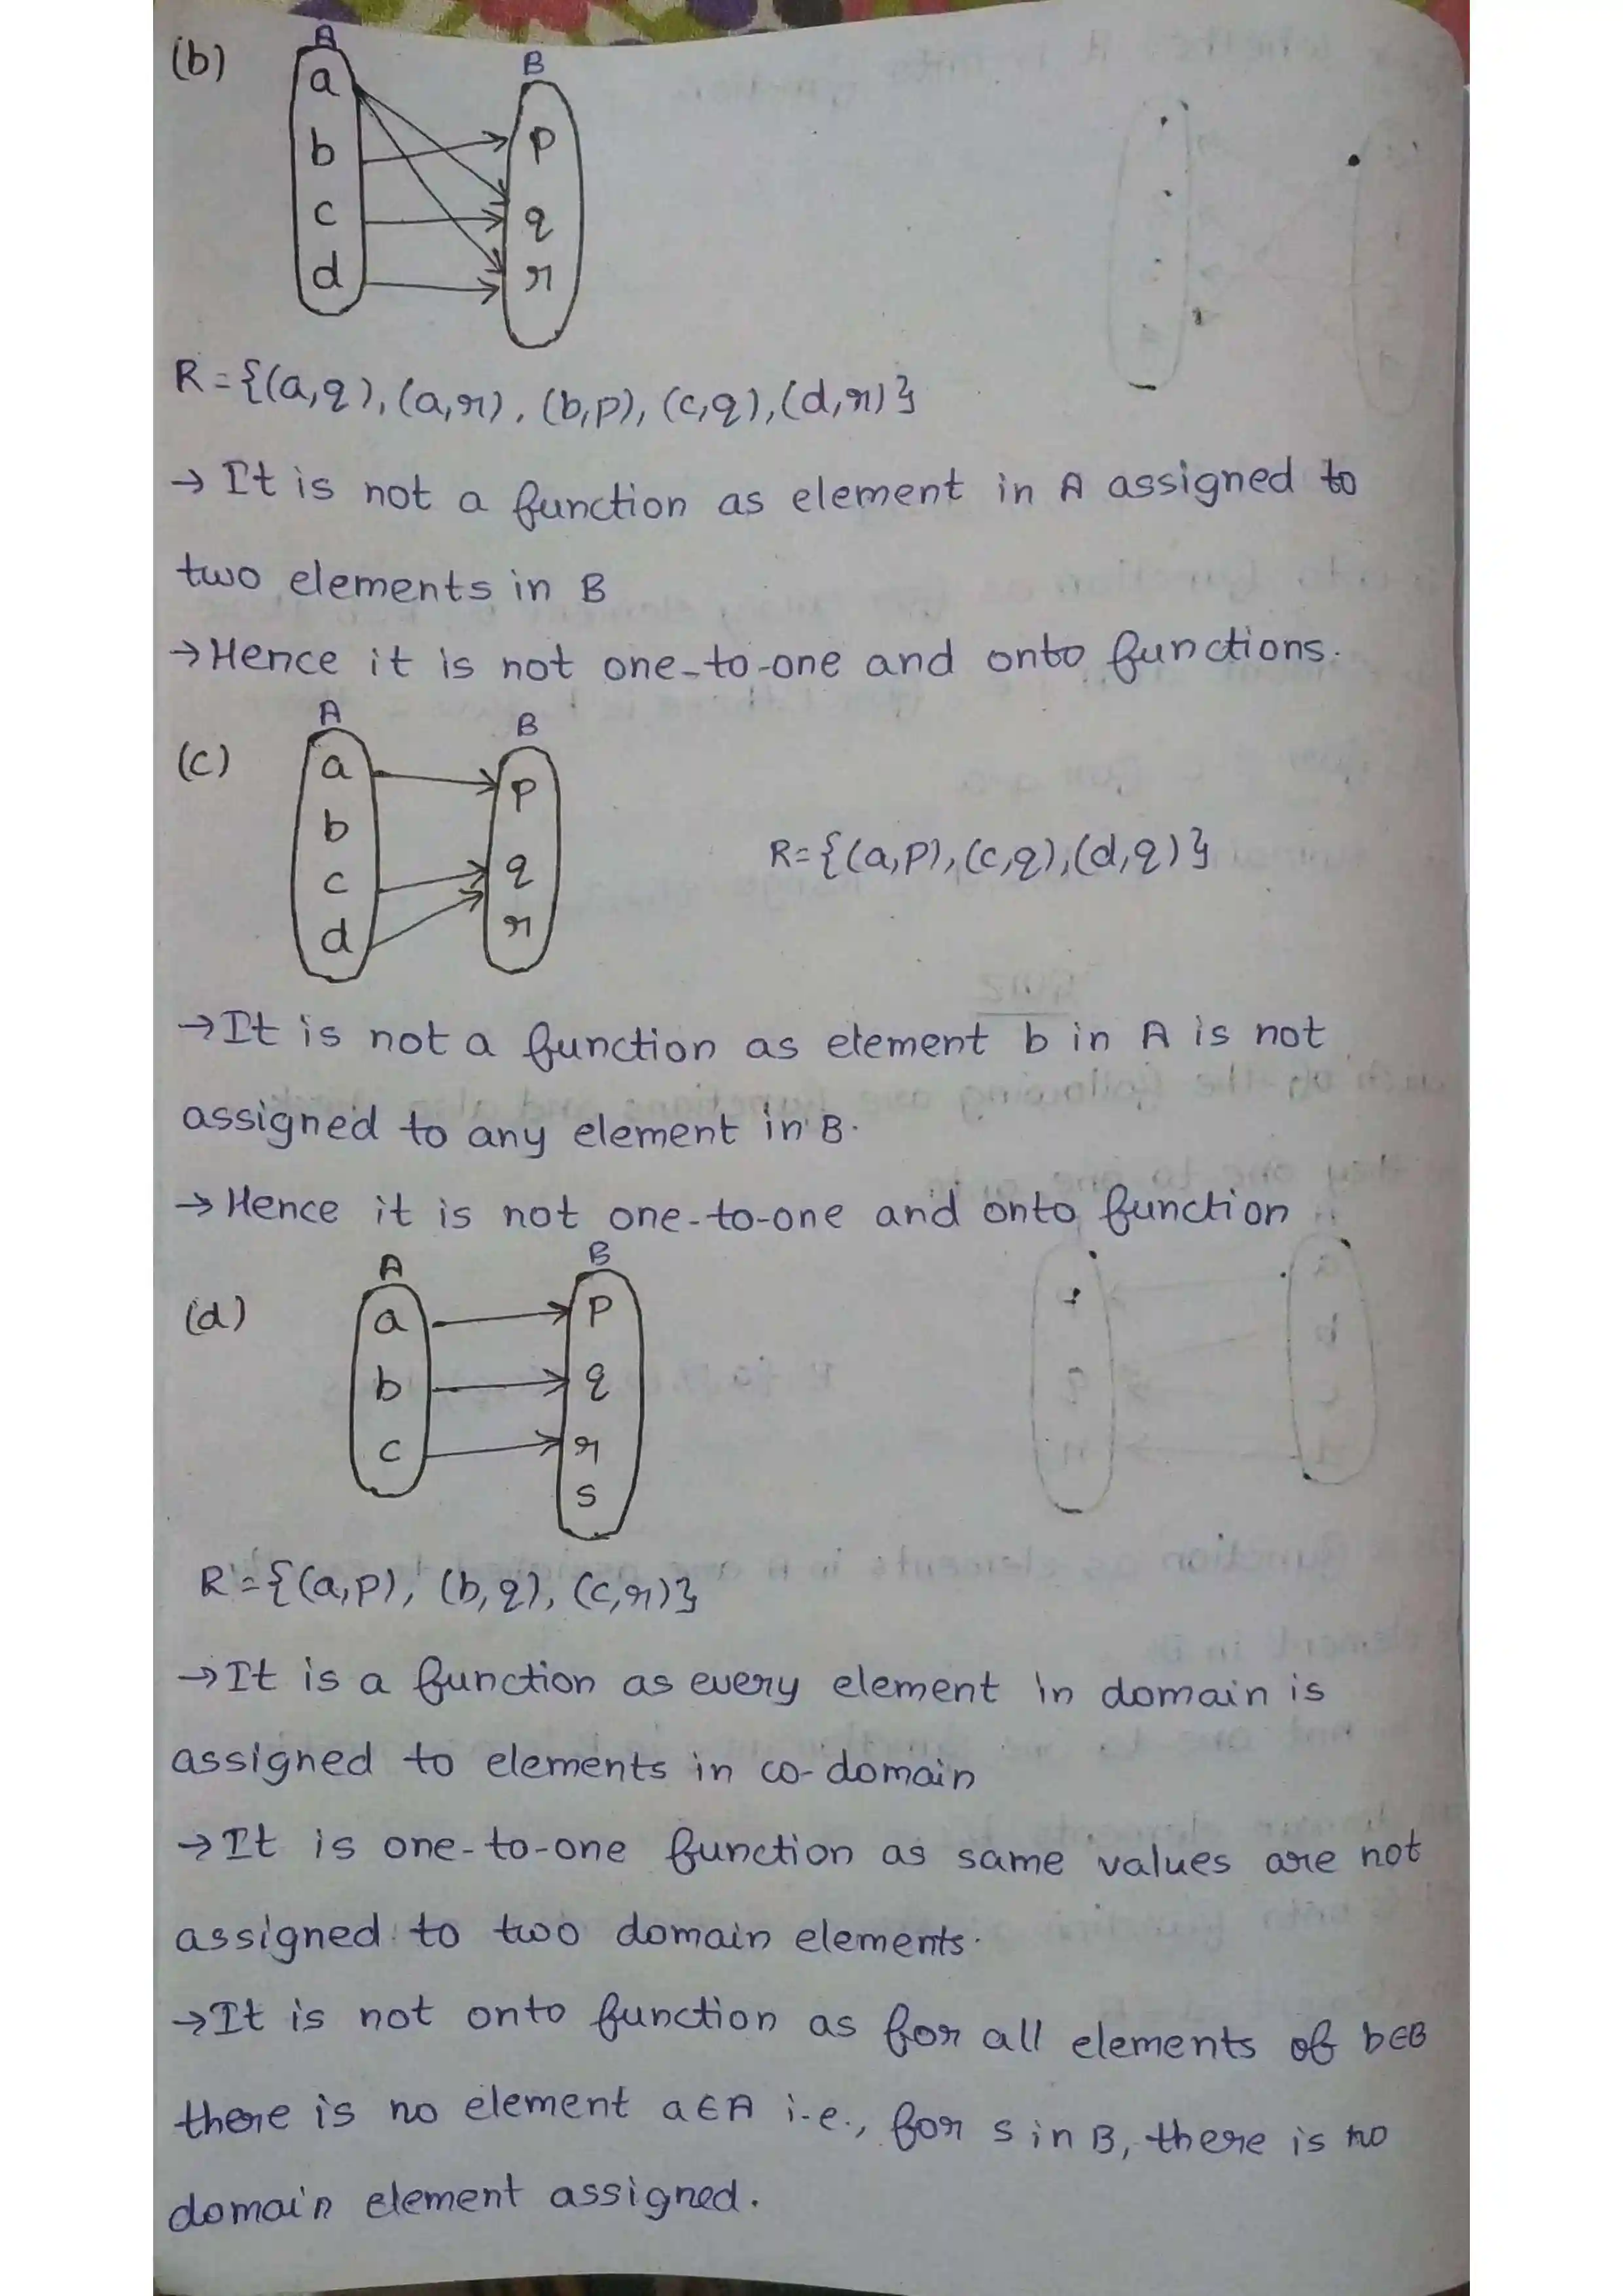 (b)
A
B
a
b
c
d
p
q
r
R={(a,q),(a,r),(b,p),(c,q),(d,r)}
→ It is not a function as element in A assigned to
two elements in B
→ Hence it is not one-to-one and onto functions.
A
B
(c)
a
b
c
d
p
q
r
R={(a,p),(c,q),(d,q)}
→ It is not a function as element b in A is not
assigned to any element in B.
→ Hence it is not one-to-one and onto function
A
B
(d)
a
b
c
p
q
r
s
R={(a,p), (b,q), (c,r)}
→ It is a function as every element in domain is
assigned to elements in co-domain
→ It is one-to-one function as same values are not
assigned to two domain elements.
→ It is not onto function as for all elements of b∈B
there is no element a∈A i.e., for s in B, there is no
domain element assigned.